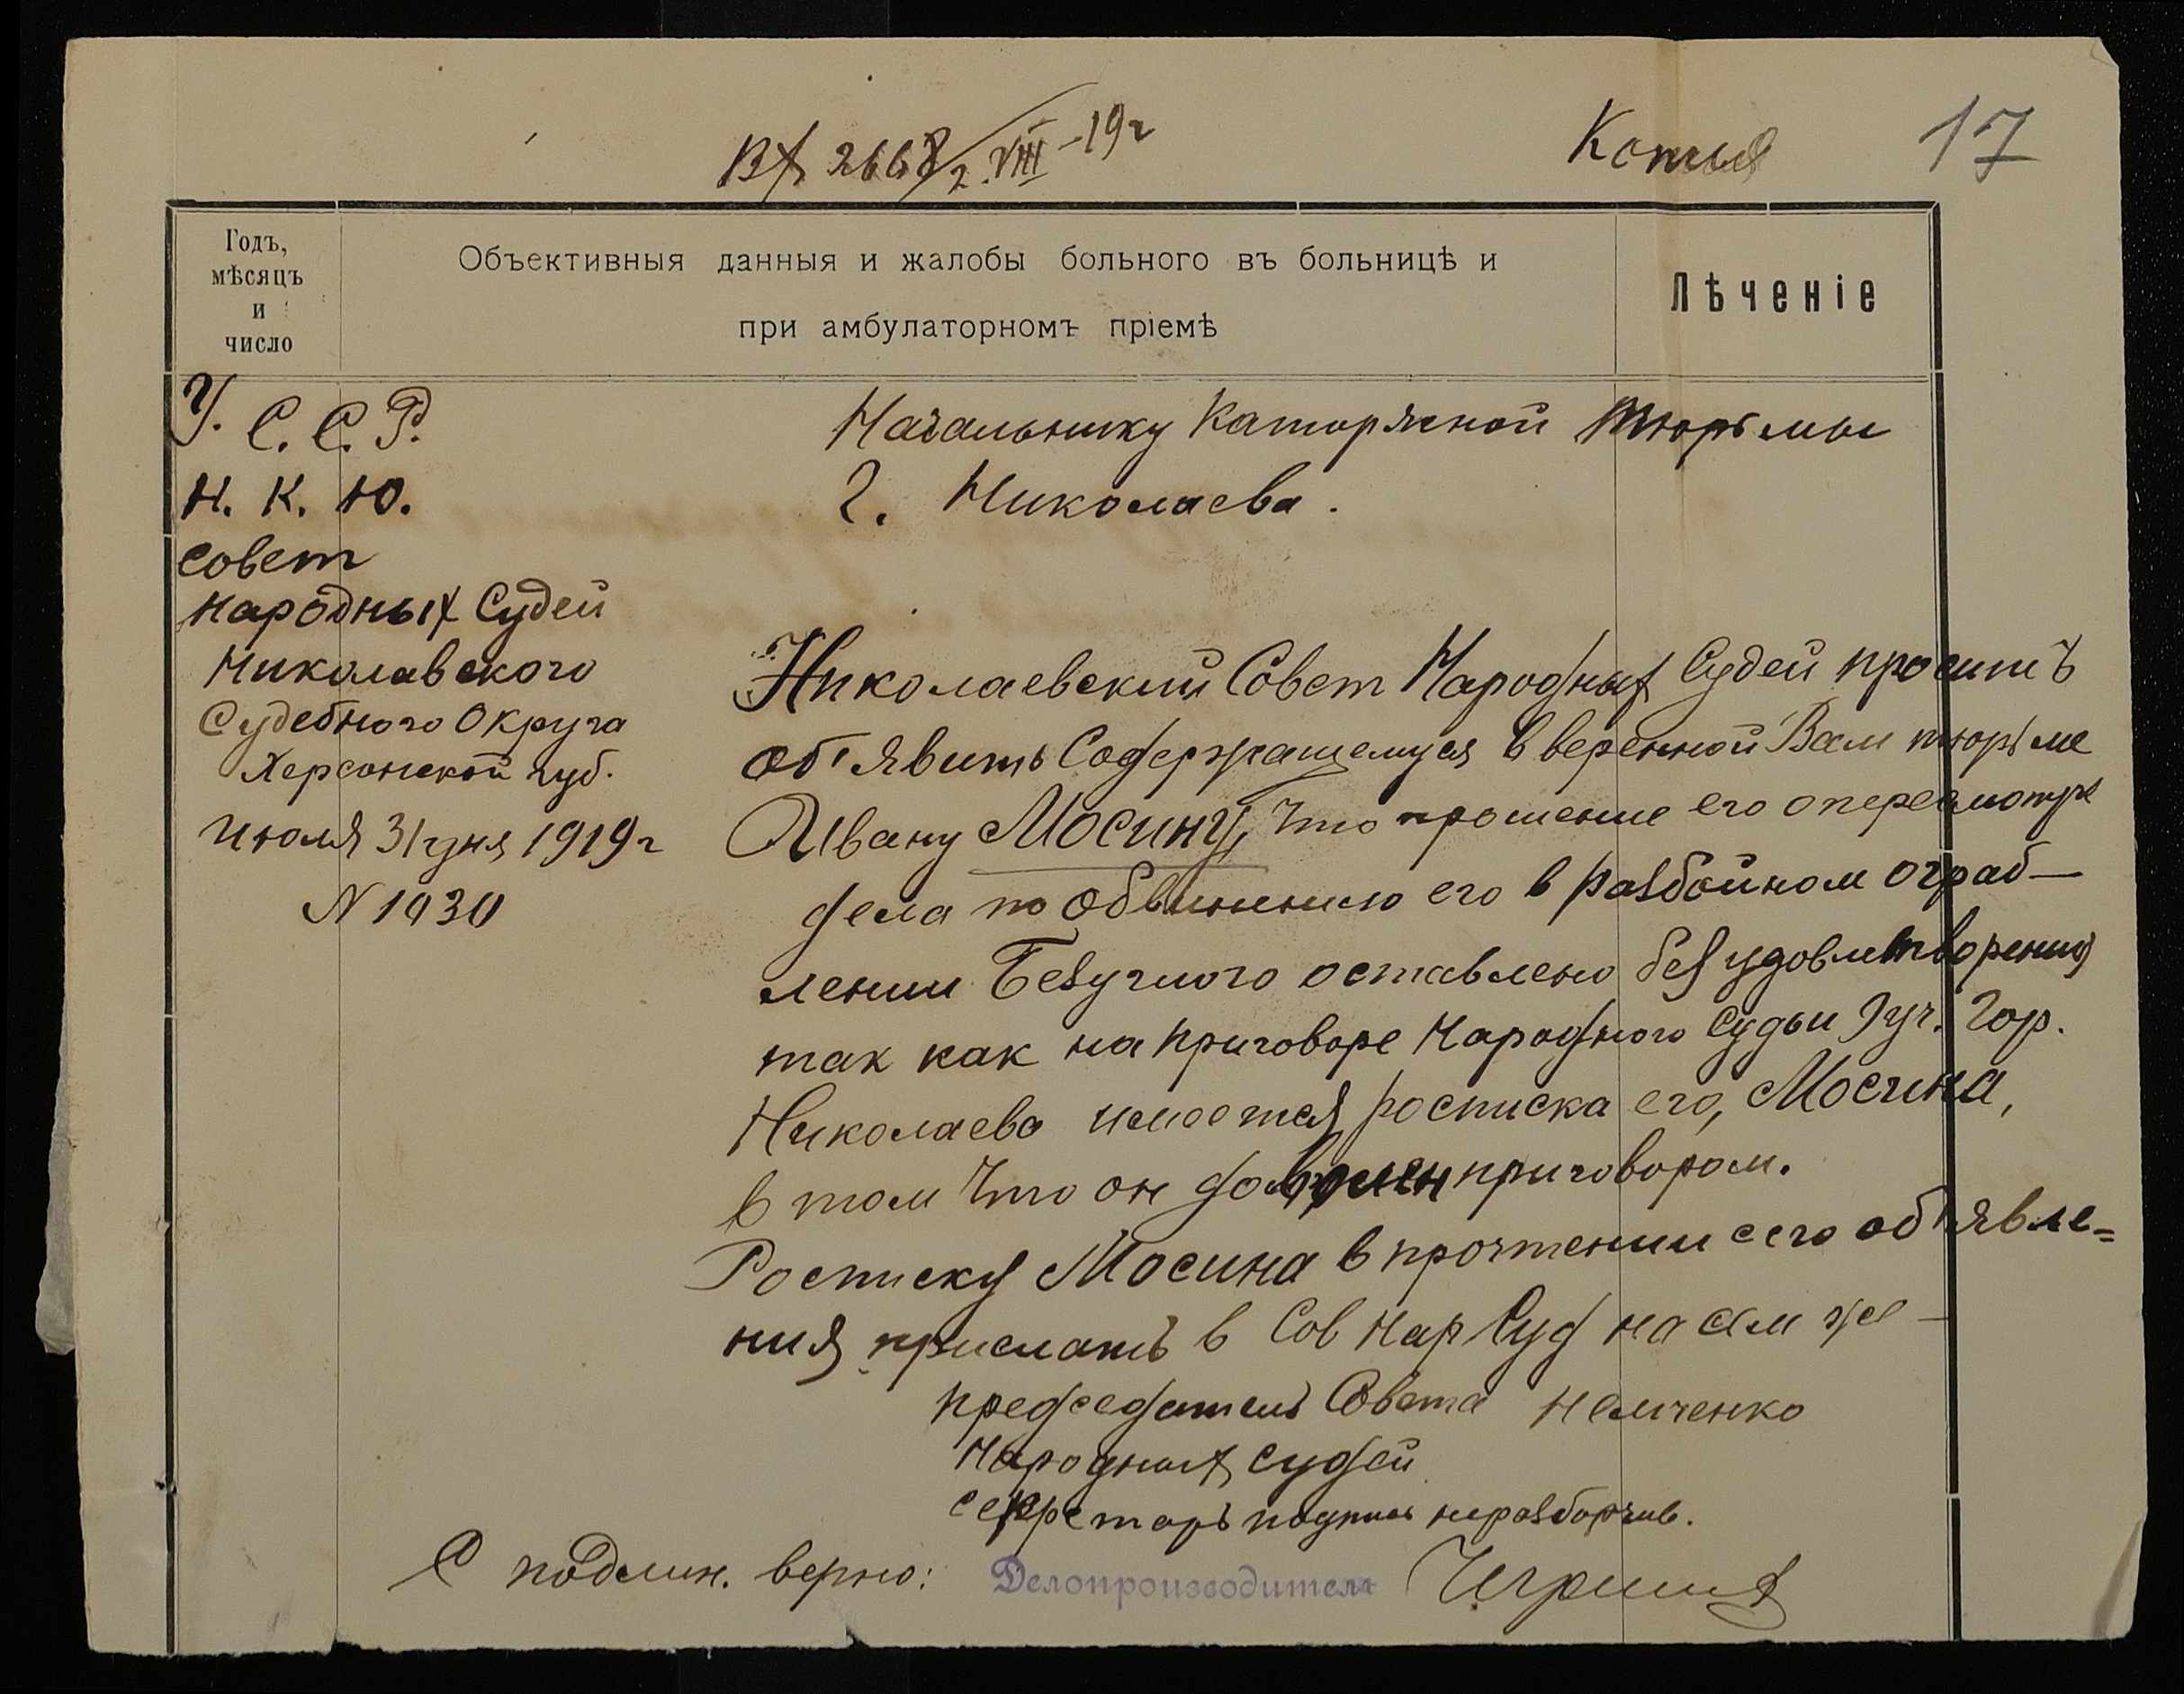 Вх 2668/2.VIII-19г
Копия
17
Годъ,
мѣсяцъ
и
число
Объективныя данныя и жалобы больного въ больницѣ и
при амбулаторномъ пріемѣ
Лѣченіе
У. С. С. Р.
Н. К. Ю.
Совет
Народных Судей
Николавского
Судебного Округа
Херсонской губ.
Июля 31 дня 1919 г
N 1930
Начальнику Каторжной Тюрьмы
г. Николаева.
Николаевский Совет Народных Судей просить
об'явить Содержащемуся вверенной Вам тюрьме
Ивану Мосину, что прошение его о пересмотре
дела по обвинению его в разбойном ограб-
лении Безуглого оставлено без удовлетворения
так как на приговоре Народного Судьи уч. Гор.
Николаева имеется росписка его, Мосина,
в том что он доволен приговором.
Росписку Мосина в прочтении сего об'явле=
ния прислать в Сов Нар Суд на сем же-
председатель Совета Немченко
Народных Судей
секретарь подпись неразборчив.
С подлин. верно:
Делопроизводитель